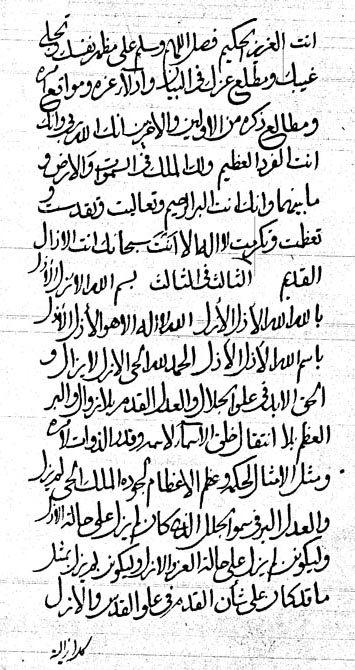 انت العزيز الحكيم فصل اللهم وسلم على مظهر نفسك وتجلي
غيبك ومطلع عزك في البيان وادلاء عزه ومواقع امره
ومطالع ذكره من الاولين والاخرين انك الله ربي وانك
انت الفرد العظيم ولك الملك في السموات والارض و
ما بينهما وانك انت البر الرحيم وتعاليت وتقدست و
تعظمت وتكرمت لا اله الا انت سبحانك انت الازال
القديم الثالث في الثالث بسم الله الازل الازل
بالله الله الازل الازل الله لا اله الا هو الازل الازل
باسم الله الازل الازل الحمد لله الحي الازل لا يزال و
الحق الابد في علو الجلال والعدل القدم بلا زوال والبر
العظم بلا انتقال خلق الاسماء لاسمه وقدر الذوات لامره
ومثل الامثال لحكمه وعظم الاعظام لجوده الملك الحي لم يزل
والعدل البر في سمو الجلل الله كان لم يزل على حالة الازل
وليكونن لم يزل على حالة العز والازل وليكونن لم يزل بمثل
ما قد كان على شأن القدم في علو القدس والازل